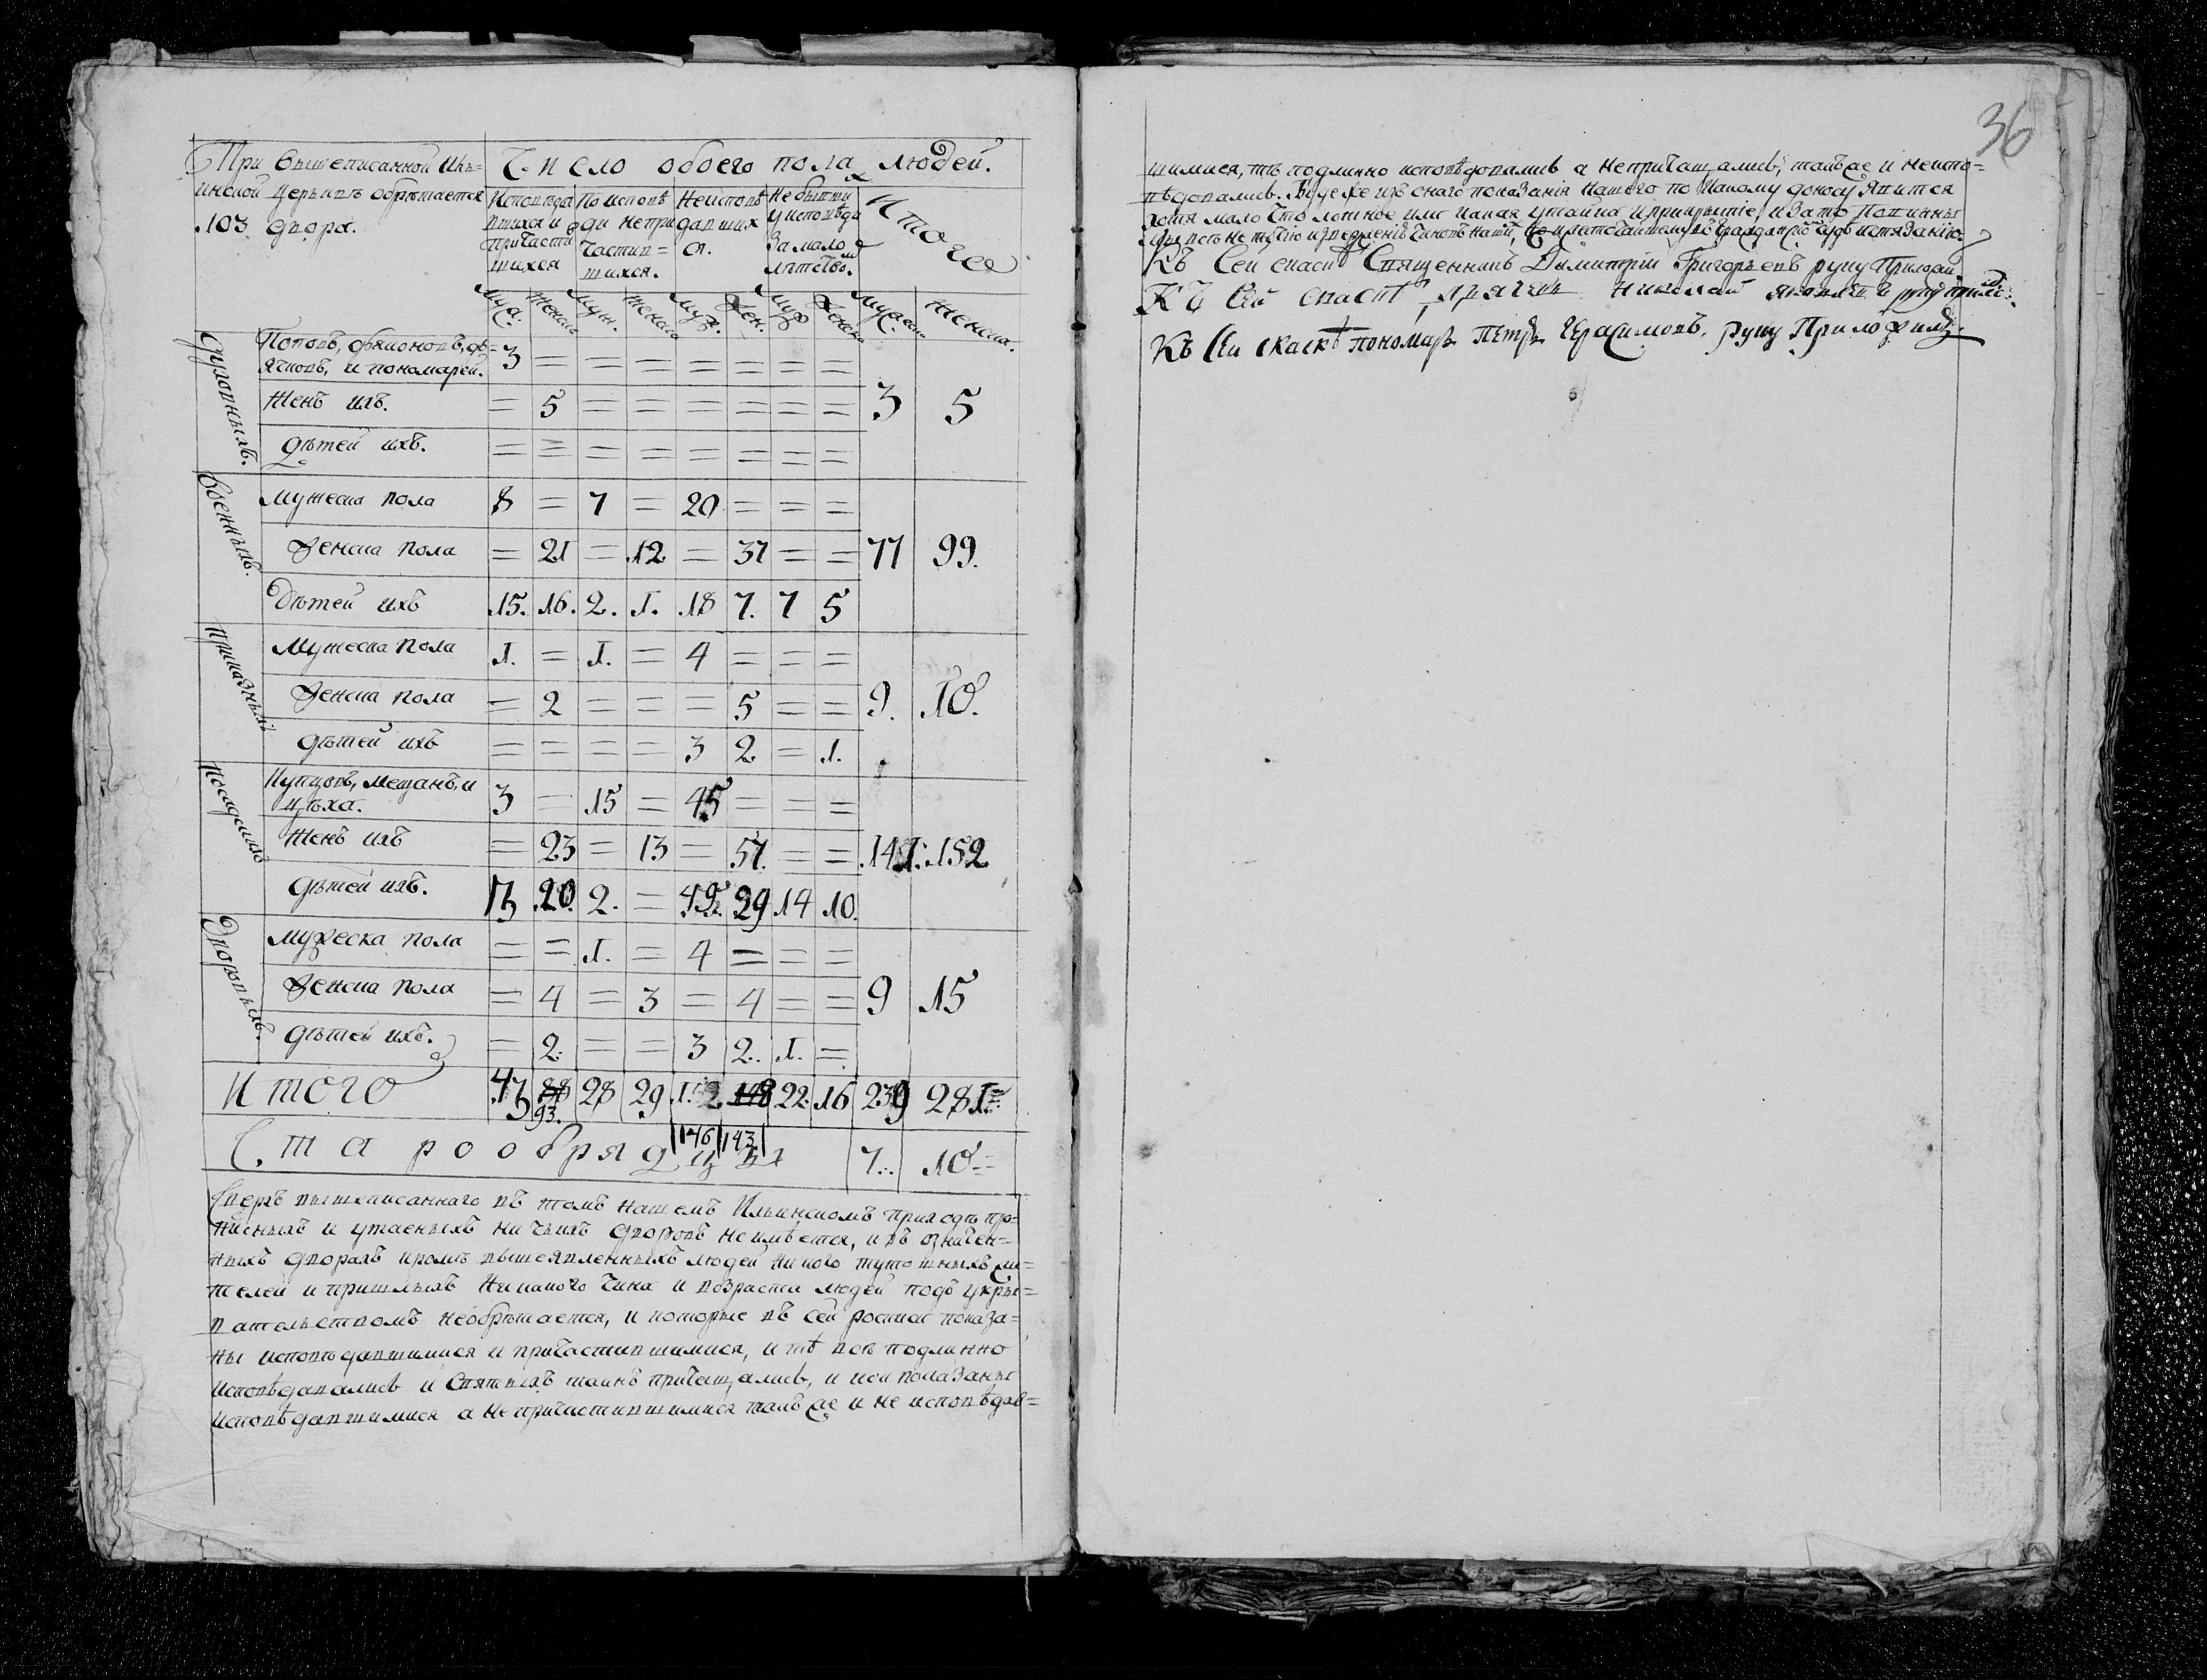 При вышеписанной Иль=
инской церьквѣ обрѣтается
103 двора.
Число обоего пола людей.
Исповѣда вшихся и причасти вшихся
По исповѣ ди непри частив= шихся.
Неисповѣ давшихся.
Не бывши у исповѣди за мало лѣтство.
Итого
Муж. Женска Муж. Женска Муж. Жен. Муж Женска Мужеска Женска.
Духовныхъ.
Поповъ, дьяконовъ, дь=
ячковъ, и пономарей. 3 = = = = = = =
Женъ ихъ. = 5 = = = = = = 3 5
дѣтей ихъ. = = = = = = = =
Военныхъ.
Мужеска пола 8 = 7 = 20 = = =
Женска пола = 21 = 12 = 37 = = 77 99.
Дѣтей ихъ 15. 16. 2. 1. 18 7. 7 5
Приказныхъ
Мужеска пола 1. = 1. = 4 = = =
Женска пола = 2 = = = 5 = = 9. 10.
дѣтей ихъ = = = = 3 2. = 1.
Посадскихъ
Купцовъ, мещанъ, и
цѣха. 3 = 15 = 45 = = =
Женъ ихъ = 23 = 13 = 57. = = 141. 152
дѣтей ихъ. 13 20. 2. = 49. 29 14 10.
Дворовыхъ.
Мужеска пола = = 1. = 4 = = =
Женска пола = 4 = 3 = 4 = = 9 15
дѣтей ихъ. = 2. = = 3 2. 1. =
Итого 43 88 93. 28 29 148 22. 16 239 281.
146 143
Старообрядцъвъ 7. 10
Сверхъ вышеписаннаго въ томъ нашемъ Ильинскомъ приходѣ про=
писныхъ и утаеныхъ ни чьихъ дворовъ не имѣется, и въ означен=
ныхъ дворахъ кромѣ вышеявленныхъ людей никого тутошныхъ жи=
телей и пришлыхъ никакого чина и возраста людей подъ укры=
вательствомъ необрѣтается, и которые въ сей росписи показа=
ны исповѣдавшимися и причастившимися, и тѣ всѣ подлинно
исповѣдавались и святыхъ таинъ причащались, и кои показаны
исповѣдавшимися а не причастившимися такъ же и не исповѣдав=
36
шимися, тѣ подлинно исповѣдовались а непричащались, такъ же и неиспо=
вѣдовались. Буде же изъ сего показанія нашего по какому доносу явится
хотя мало что ложное или какая утайка и прикрытіе, и за то повинны
мы всѣ не тóкмо изверженію чиновъ нашихъ, но и жесточайшему въ гражданскомъ судѣ истязанію.
Къ сей сказкѣ Священникъ Димитрій Григорьевъ руку приложи.
Къ сей сказкѣ дьячекъ Николай Яковлевъ руку прилож.
Къ сеи скаскѣ пономарь Петръ Герасимовъ руку приложилъ.